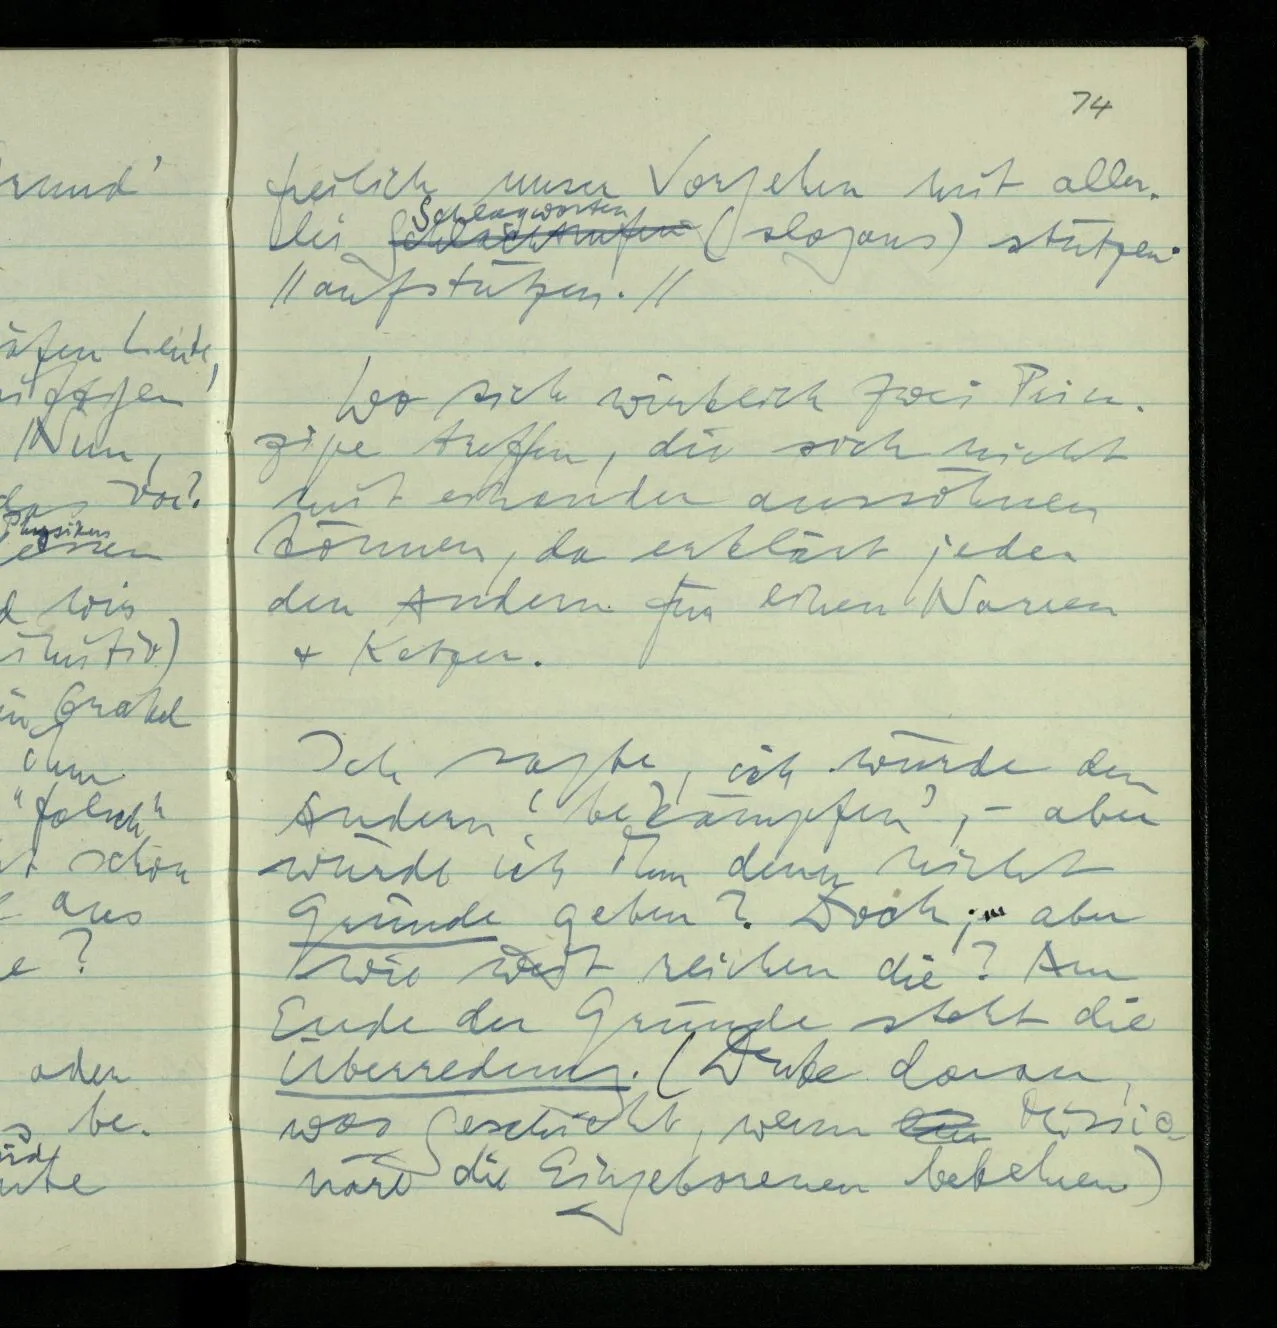 74
freilich unser Vorgehen mit aller-
lei Schlagworten
Schlachtrufen (slogans) stützen.
//aufstützen.//
Wo sich wirklich zwei Prin-
zipe treffen, die sich nicht
mit einander aussöhnen
können, da erklärt jeder
den Andern für einen Narren
+ Ketzer.
Ich sagte, ich würde den
Andern 'bekämpfen', – aber
würde ich ihm denn nicht
Gründe geben? Doch; aber
wie weit reichen die? Am
Ende der Gründe steht die
Überredung. (Denke daran,
was geschieht, wenn Missio-
näre die Eingeborenen bekehren)
rund'
Leute,
Nun,
vor?
Physikers
wie
Orakel
ihm
"falsch"
schon
aus
?
oder
be-